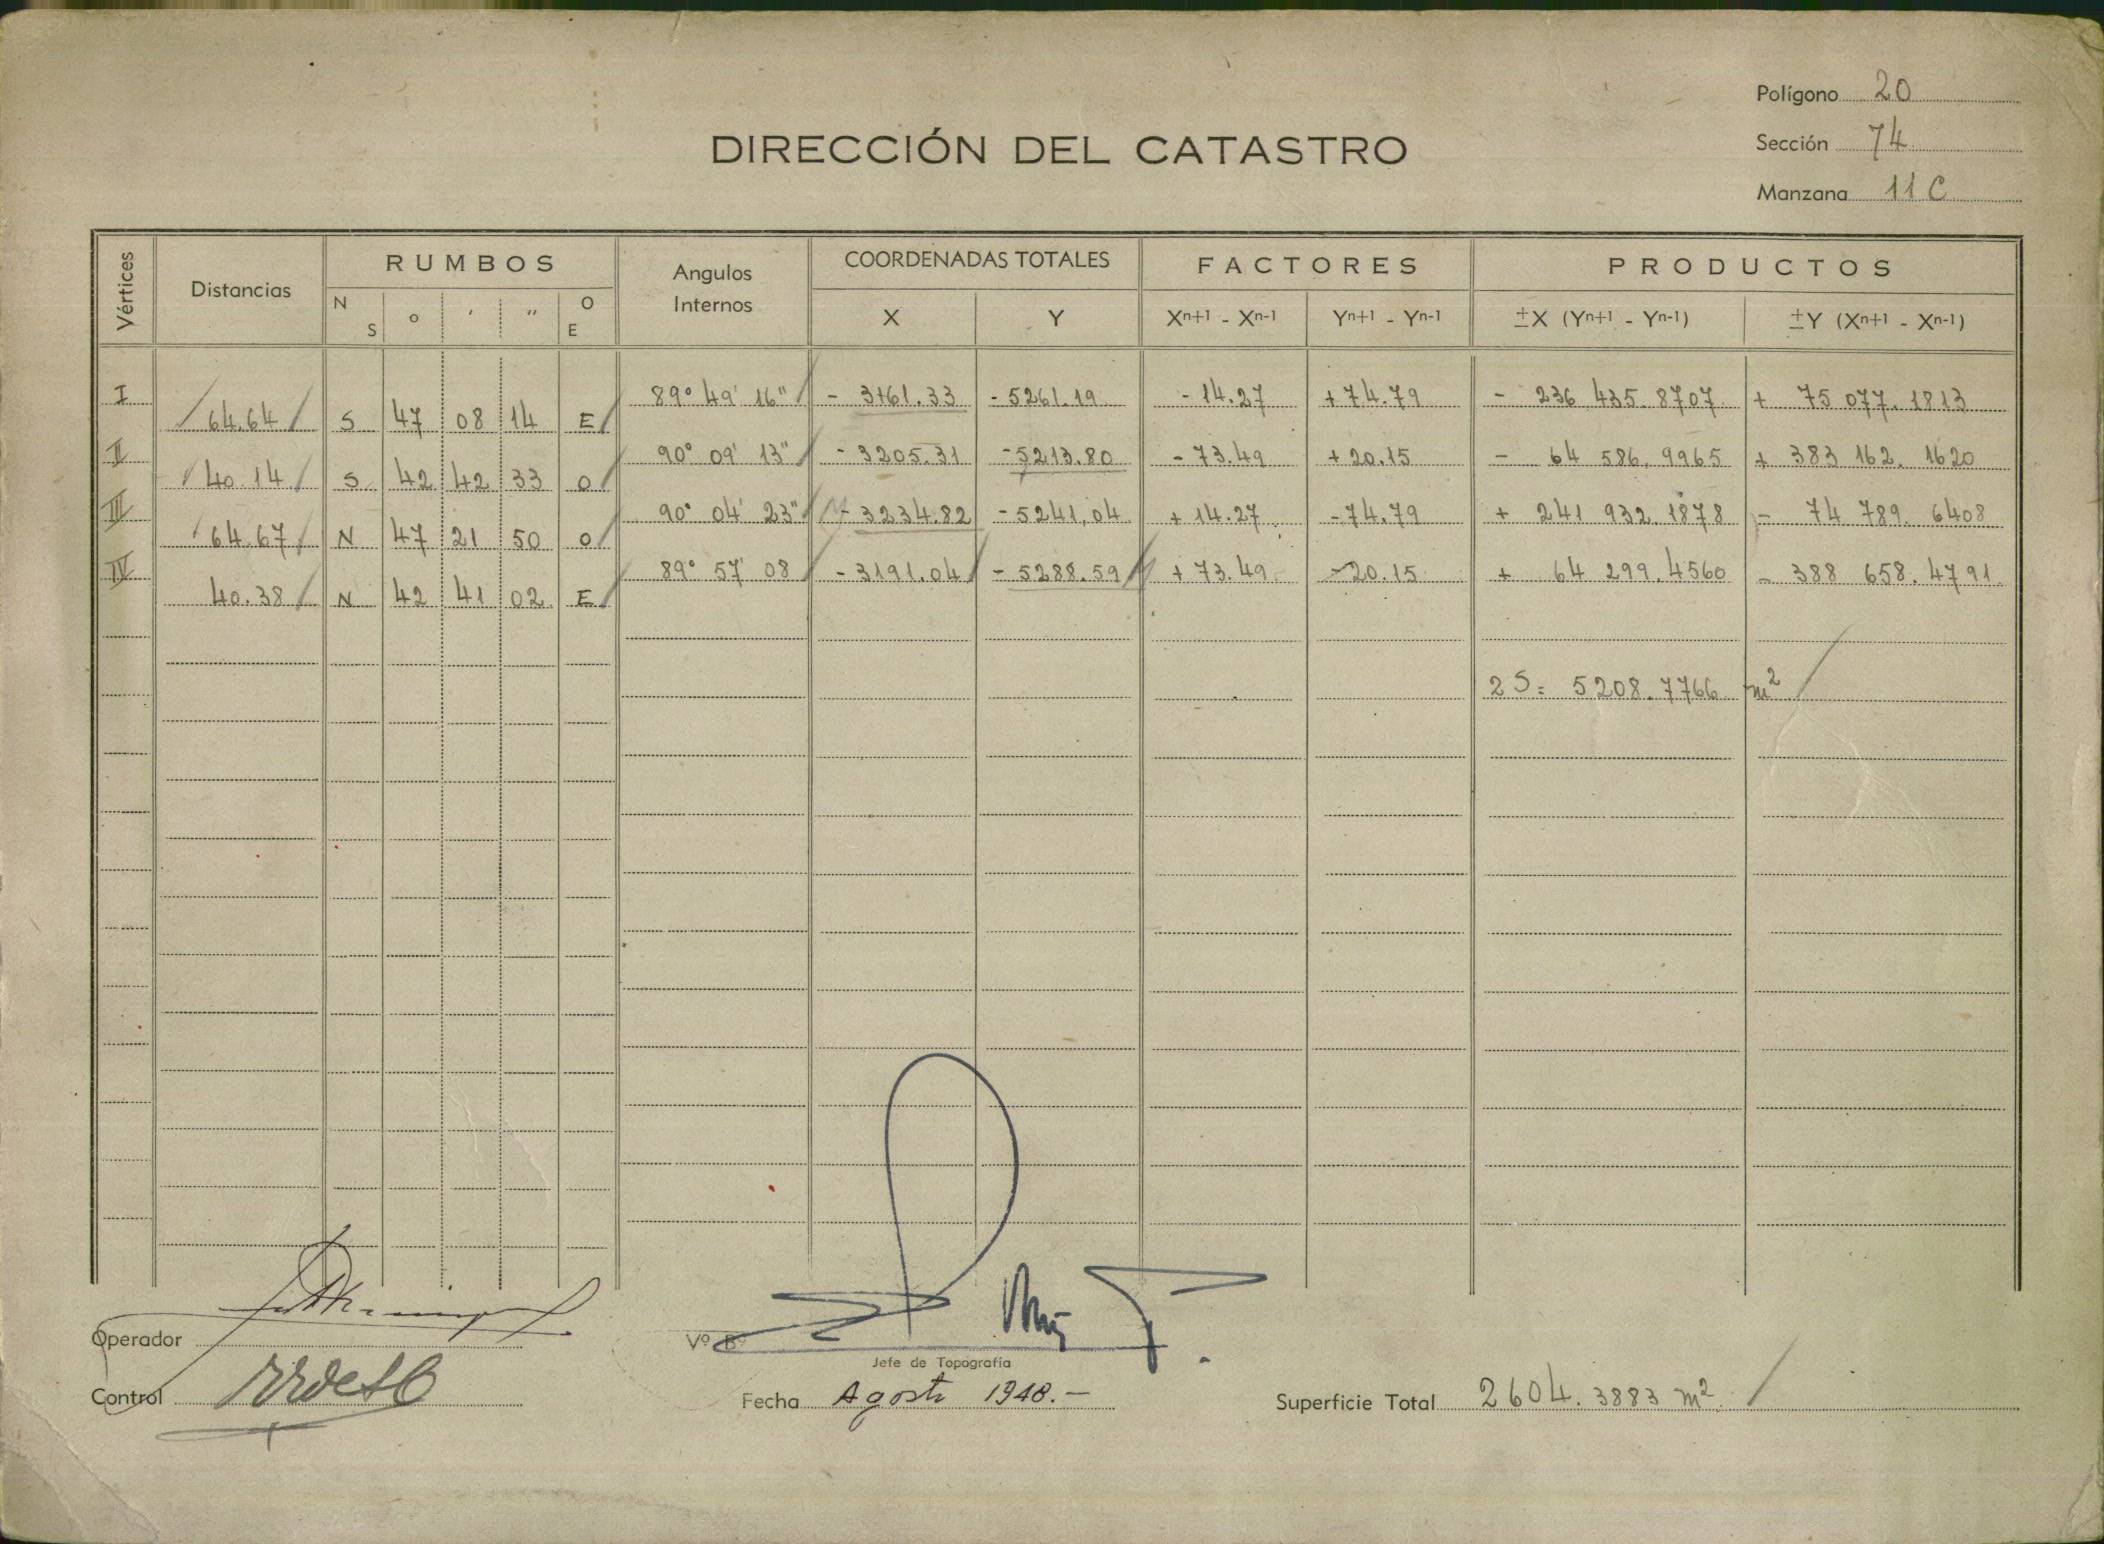 Polígono 20
DIRECCIÓN DEL CATASTRO
Sección 74
Manzana 11 C
Vértices Distancias RUMBOS Angulos Internos COORDENADAS TOTALES FACTORES PRODUCTOS
N S o ' '' O E X Y Xⁿ⁺¹ - Xⁿ⁻¹ Yⁿ⁺¹ - Yⁿ⁻¹ ±X (Yⁿ⁺¹ - Yⁿ⁻¹) ±Y (Xⁿ⁺¹ - Xⁿ⁻¹)
I 89° 49' 16" - 3161.33 - 5261.19 - 14.27 + 74.79 - 236 435.8707 + 75 077.1813
64.64 S 47 08 14 E
II 90° 09' 13" - 3205.31 - 5213.80 - 73.49 + 20.15 - 64 586.9965 + 383 162.1620
40.14 S 42 42 33 O
III 90° 04' 23" - 3234.82 - 5241,04 + 14.27 - 74.79 + 241 932.1878 - 74 789.6408
64.67 N 47 21 50 O
IV 89° 57' 08 - 3191.04 - 5288.59 + 73.49 - 20.15 + 64 299.4560 - 388 658.4791
40.38 N 42 41 02 E
2S = 5208.7766 m²
Operador
Vº Bº
Jefe de Topografía
Control
Fecha Agosto 1948.-
Superficie Total 2604.3883 m²